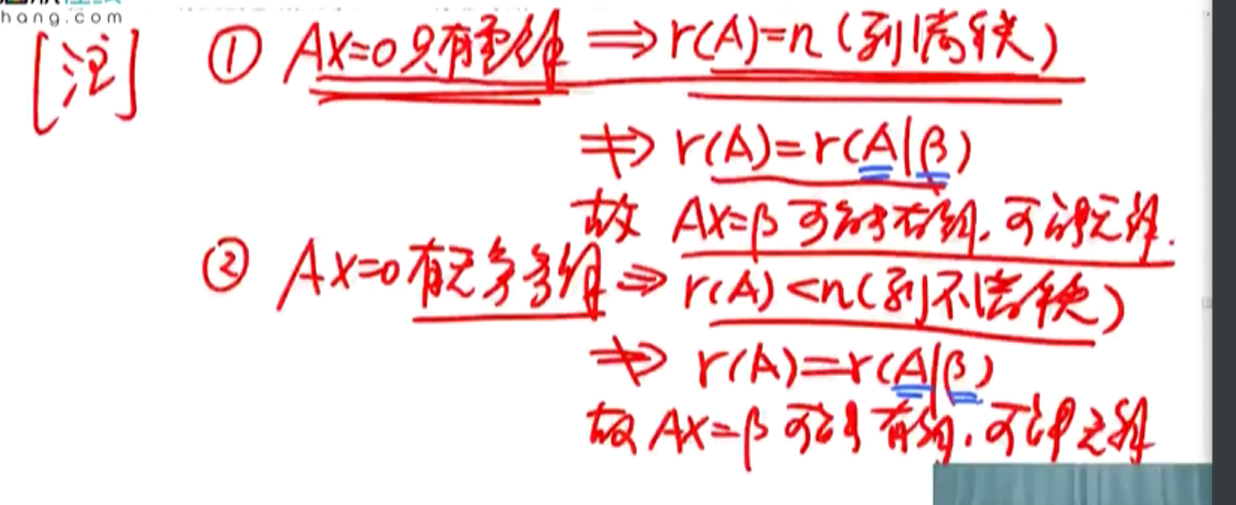 hang.com
[注] ① AX=0只有零解 ⇒ r(A)=n (列满秩)
⇏ r(A)=r(A|β)
故 AX=β 可能有解,可能无解.
② AX=0有无穷多解 ⇒ r(A)<n(列不满秩)
⇏ r(A)=r(A|β)
故 AX=β 可能有解,可能无解